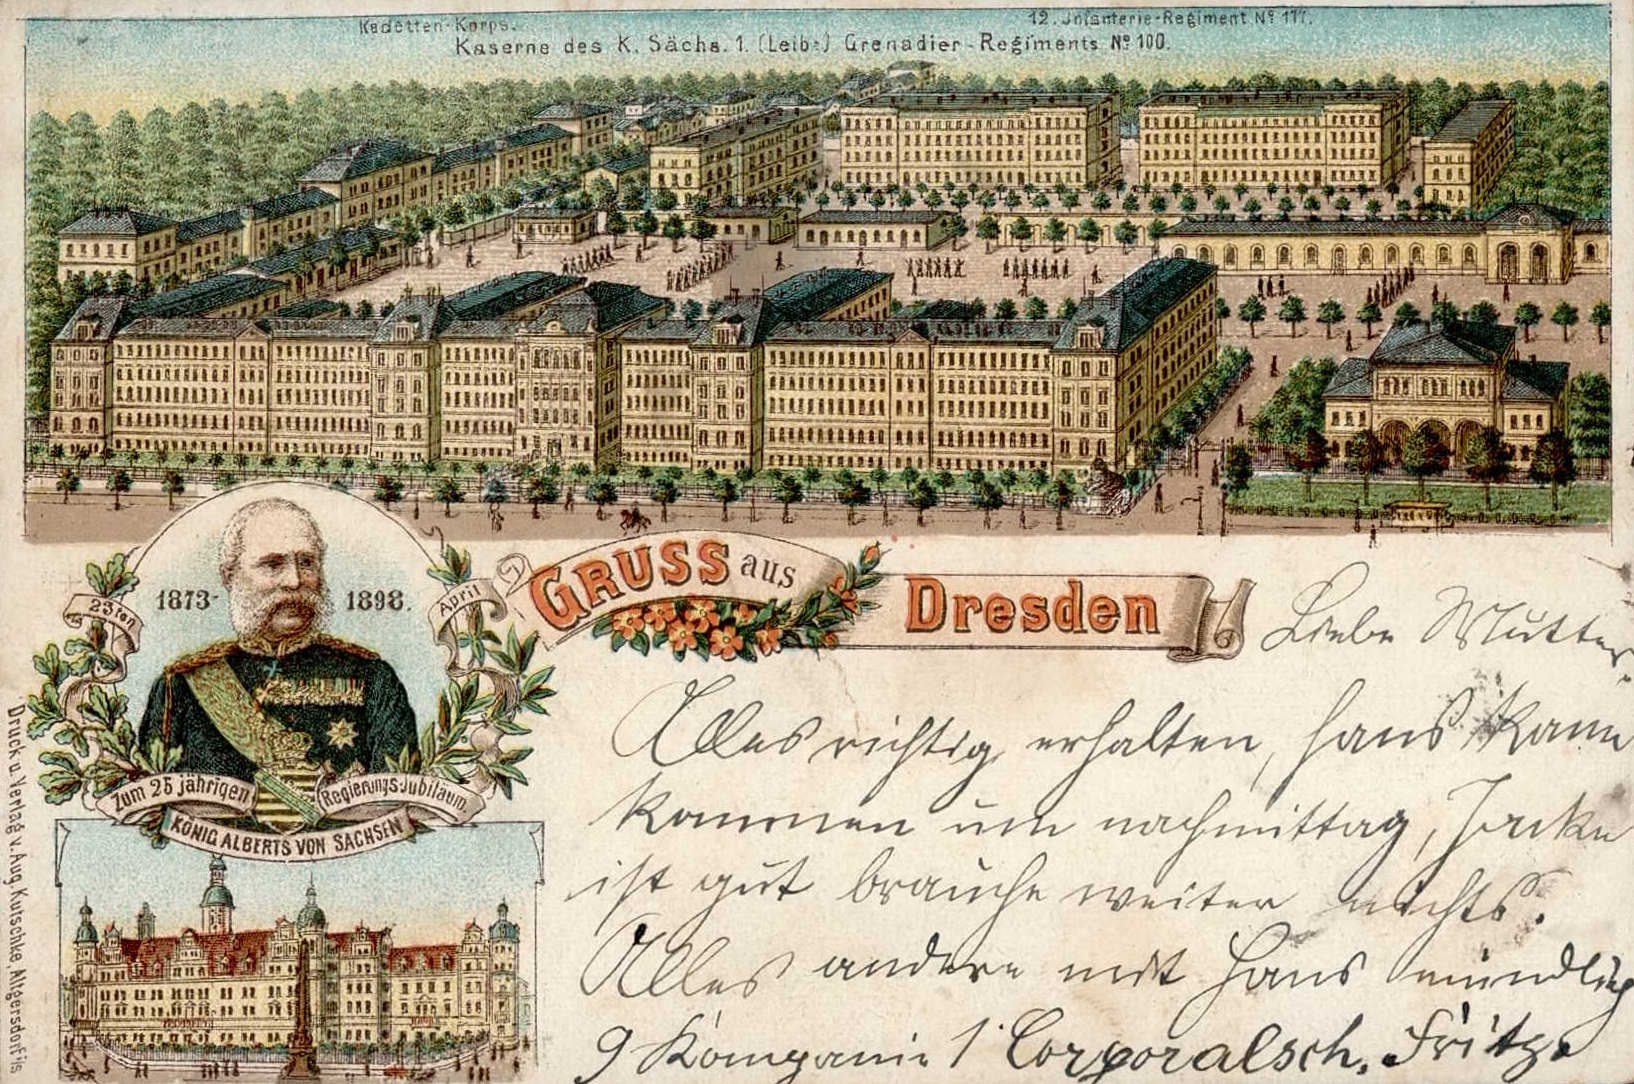 Kadetten-Korps.
12. Infanterie-Regiment No 177.
Kaserne des K. Sächs. 1. (Leib-) Grenadier-Regiments No 100.
GRUSS aus Dresden
23ten April
1873- 1898.
Zum 25 jährigen Regierungs-Jubiläum.
KÖNIG ALBERTS VON SACHSEN
Druck u. Verlag v. Aug. Kutschke, Altgersdorf i/s
Liebe Mutter
Alles richtig erhalten, Hans kann
kommen um nachmittag, Jacke
ist gut brauche weiter nichts.
Alles andere mit Hans mündlich
9 Kompanie 1 Corporalsch. Fritz